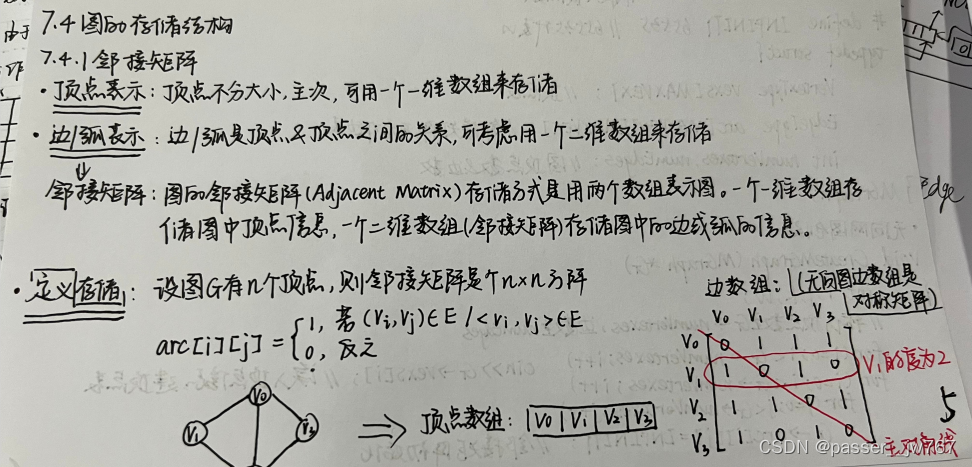 7.4 图的存储结构
7.4.1 邻接矩阵
· 顶点表示: 顶点不分大小,主次,可用一个一维数组来存储
· 边/弧表示: 边/弧是顶点与顶点之间的关系,可考虑用一个二维数组来存储
邻接矩阵: 图的邻接矩阵(Adjacent Matrix)存储方式是用两个数组表示图。一个一维数组存
储图中顶点信息,一个二维数组(邻接矩阵)存储图中的边或弧的信息。
Edge
· 定义存储: 设图G有n个顶点,则邻接矩阵是个n×n方阵
arc[i][j] = { 1, 若(vi,vj)∈E / <vi,vj>∈E
0, 反之
边数组: (无向图边数组是
对称矩阵)
V0 V1 V2 V3
V0 0 1 1 1
V1 1 0 1 0 V1的度为2
V2 1 1 0 1
V3 1 0 1 0
主对角线
5
V0
V1 V3
⇒ 顶点数组: V0 | V1 | V2 | V3